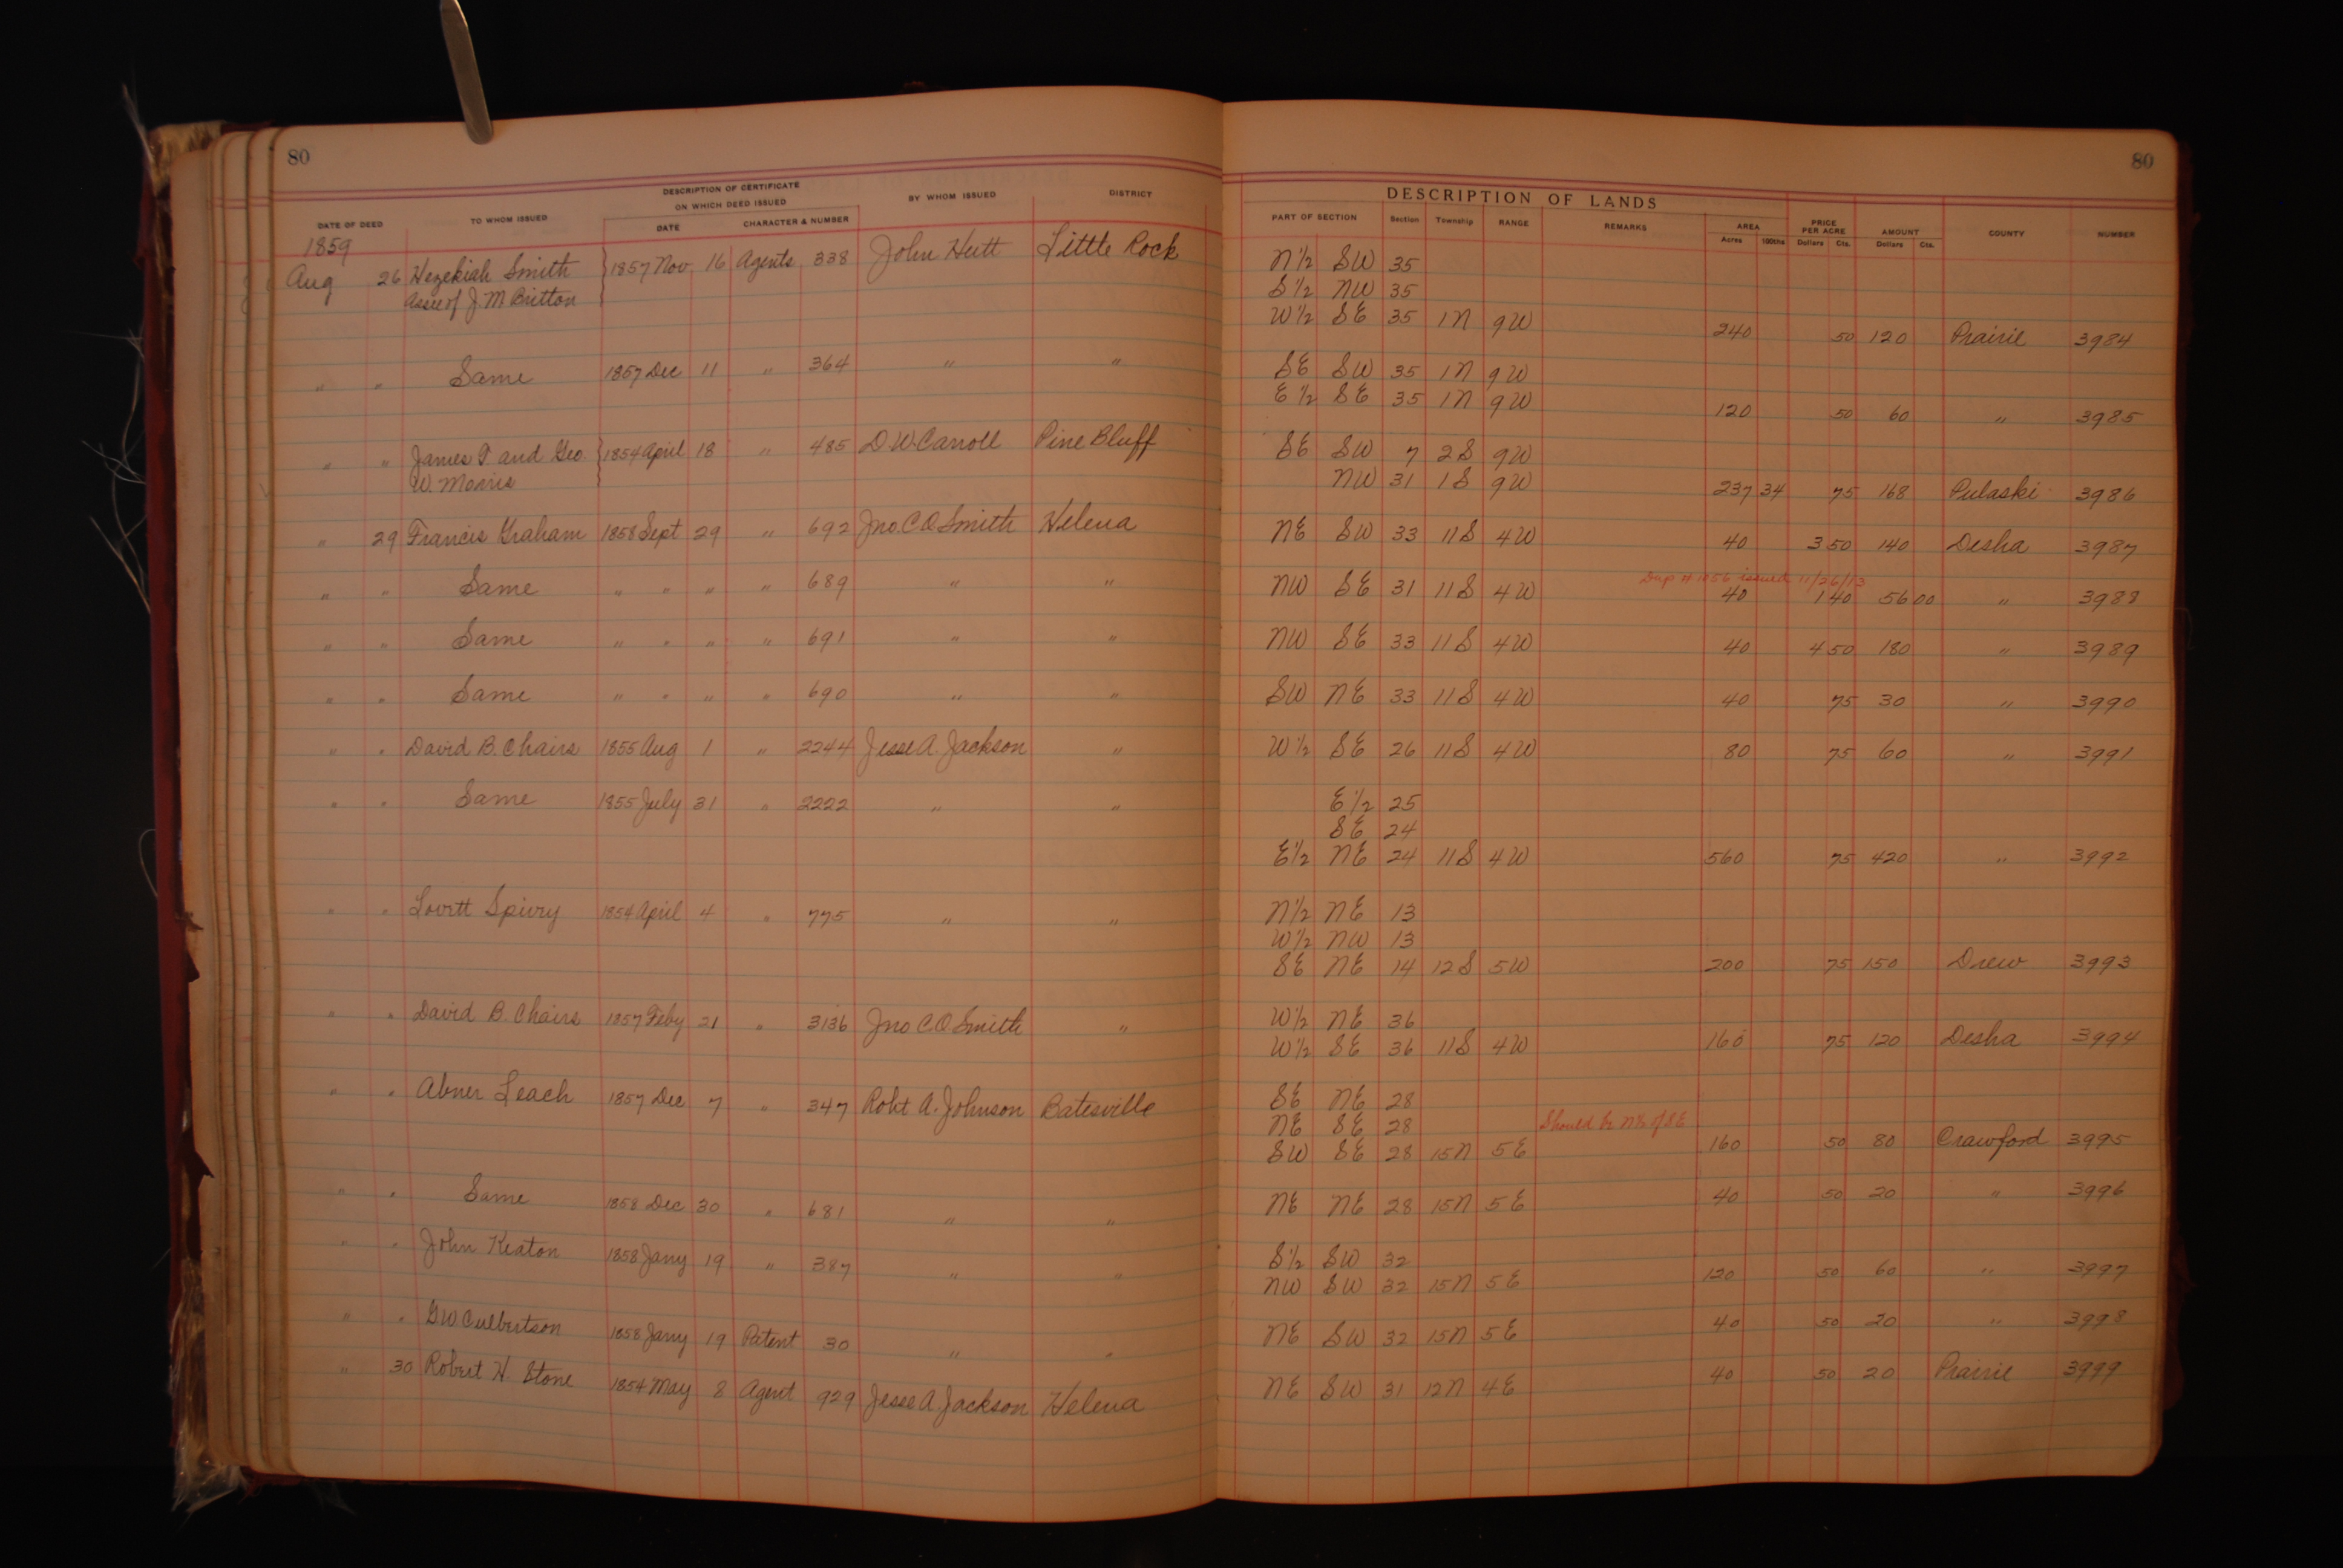 80
DESCRIPTION OF CERTIFICATE
ON WHICH DEED ISSUED
DATE OF DEED TO WHOM ISSUED DATE CHARACTER & NUMBER BY WHOM ISSUED DISTRICT
1859
Aug 26 Hezekiah Smith 1857 Nov 16 Agents 338 John Hutt Little Rock
Assee of J. M Britton
" " Same 1857 Dec 11 " 364 " "
" " James P and Geo. 1854 April 18 " 485 D. W. Carroll Pine Bluff
W. Morris
" 29 Francis Graham 1858 Sept 29 " 692 Jno. C. O. Smith Helena
" " Same " " " " 689 " "
" " Same " " " " 691 " "
" " Same " " " " 690 " "
" " David B. Chairs 1855 Aug 1 " 2244 Jesse A. Jackson "
" " Same 1855 July 31 " 2222 " "
" " Lovett Spivey 1854 April 4 " 775 " "
" " David B. Chairs 1857 Feby 21 " 3136 Jno C. O. Smith "
" " Abner Leach 1857 Dec 7 " 347 Robt A. Johnson Batesville
" " Same 1858 Dec 30 " 681 " "
" " John Keaton 1858 Jany 19 " 387 " "
" " G W Culbertson 1858 Jany 19 Patent 30 " "
" 30 Robert H. Stone 1854 May 8 Agent 929 Jesse A. Jackson Helena
80
DESCRIPTION OF LANDS
PART OF SECTION Section Township RANGE REMARKS AREA PRICE PER ACRE AMOUNT COUNTY NUMBER
Acres 100ths Dollars Cts. Dollars Cts.
N 1/2 SW 35
S 1/2 NW 35
W 1/2 SE 35 1N 9W 240 50 120 Prairie 3984
SE SW 35 1N 9W
E 1/2 SE 35 1N 9W 120 50 60 " 3985
SE SW 7 2S 9W
NW 31 1S 9W 237 34 75 168 Pulaski 3986
NE SW 33 11S 4W 40 3 50 140 Desha 3987
Dup # 1056 issued 11/26/13
NW SE 31 11S 4W 40 1 40 56 00 " 3988
NW SE 33 11S 4W 40 4 50 180 " 3989
SW NE 33 11S 4W 40 75 30 " 3990
W 1/2 SE 26 11S 4W 80 75 60 " 3991
E 1/2 25
SE 24
E 1/2 NE 24 11S 4W 560 75 420 " 3992
N 1/2 NE 13
W 1/2 NW 13
SE NE 14 12S 5W 200 75 150 Drew 3993
W 1/2 NE 36
W 1/2 SE 36 11S 4W 160 75 120 Desha 3994
SE NE 28
NE SE 28 Should be NE of SE
SW SE 28 15N 5E 160 50 80 Crawford 3995
NE NE 28 15N 5E 40 50 20 " 3996
S 1/2 SW 32
NW SW 32 15N 5E 120 50 60 " 3997
NE SW 32 15N 5E 40 50 20 " 3998
NE SW 31 12N 4E 40 50 20 Prairie 3999